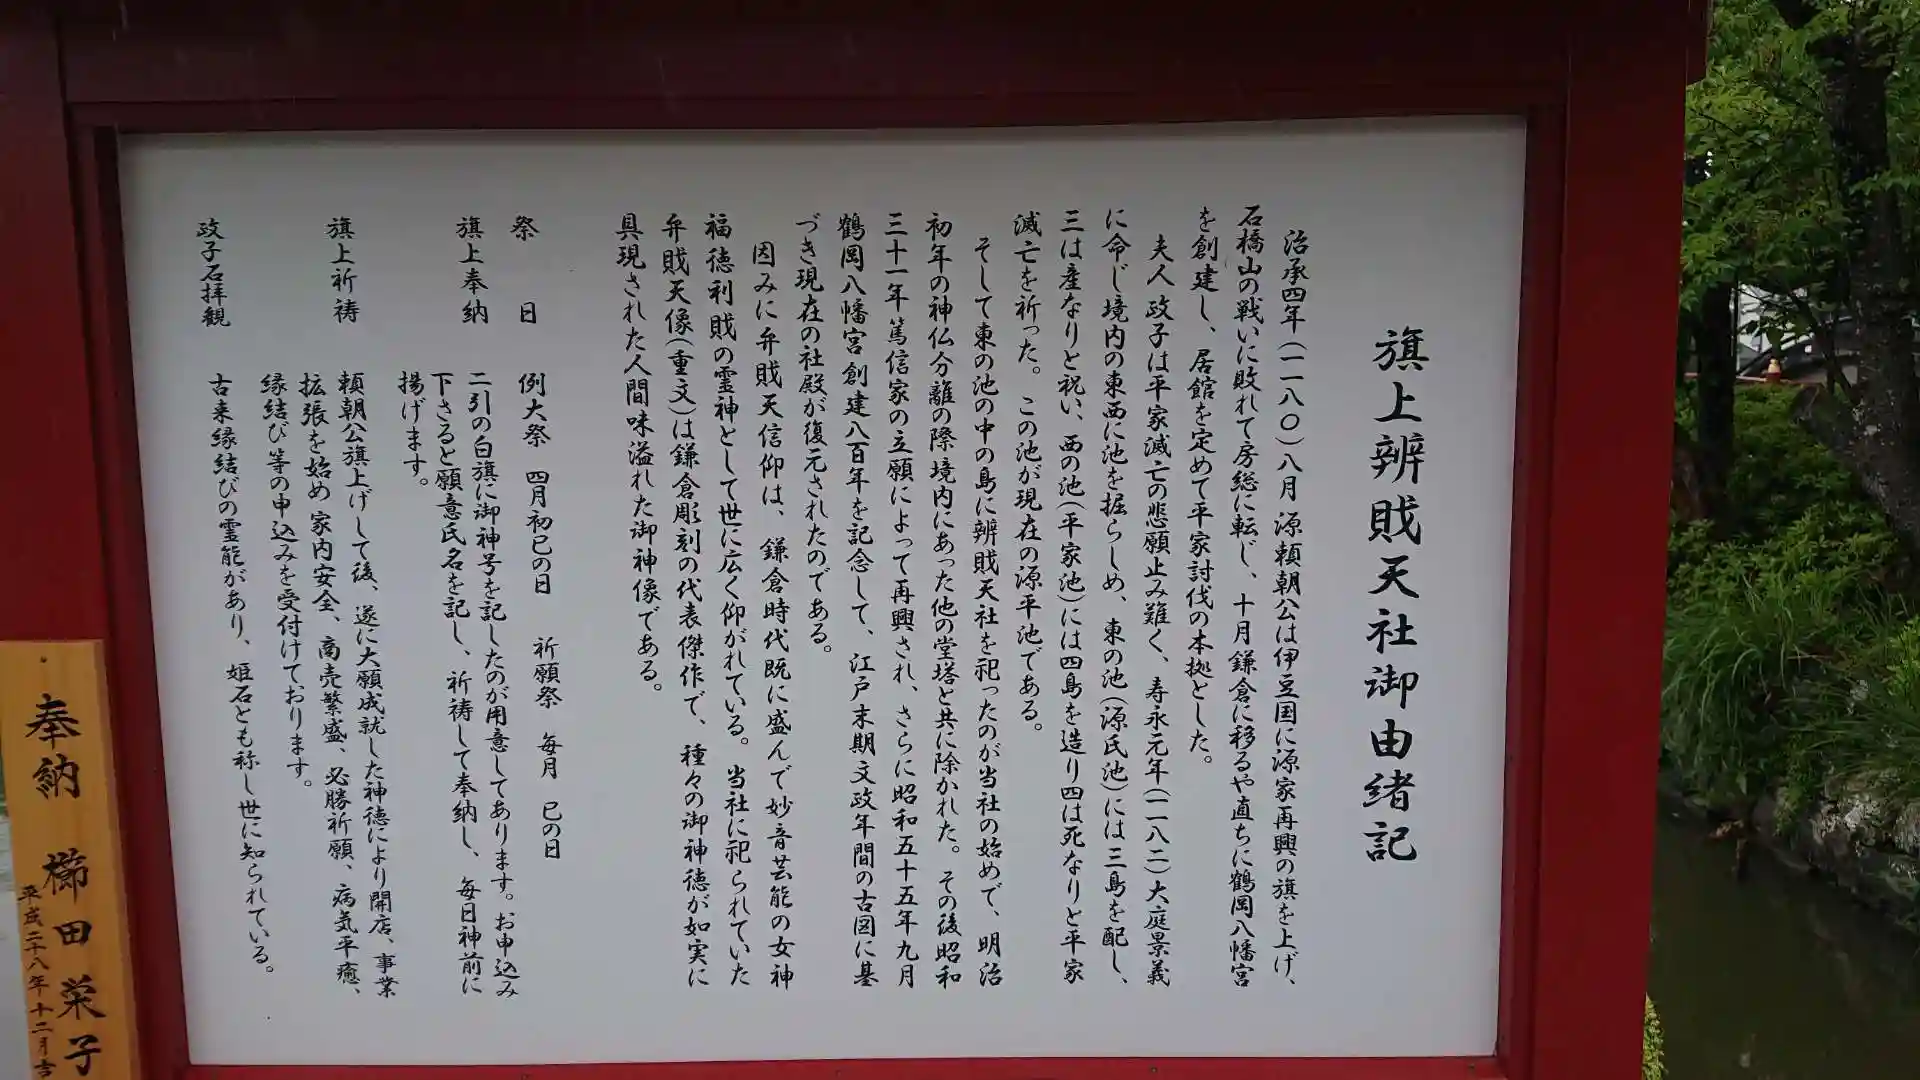 旗上辨財天社御由緒記
治承四年(一一八〇)八月源頼朝公は伊豆国に源家再興の旗を上げ、
石橋山の戦いに敗れて房総に転じ、十月鎌倉に移るや直ちに鶴岡八幡宮
を創建し、居館を定めて平家討伐の本拠とした。
夫人 政子は平家滅亡の悲願止み難く、寿永元年(一一八二)大庭景義
に命じ境内の東西に池を掘らしめ、東の池(源氏池)には三島を配し、
三は産なりと祝い、西の池(平家池)には四島を造り四は死なりと平家
滅亡を祈った。この池が現在の源平池である。
そして東の池の中の島に辨財天社を祀ったのが当社の始めで、明治
初年の神仏分離の際境内にあった他の堂塔と共に除かれた。その後昭和
三十一年篤信家の立願によって再興され、さらに昭和五十五年九月
鶴岡八幡宮創建八百年を記念して、江戸末期文政年間の古図に基
づき現在の社殿が復元されたのである。
因みに弁財天信仰は、鎌倉時代既に盛んで妙音芸能の女神
福徳利財の霊神として世に広く仰がれている。当社に祀られていた
弁財天像(重文)は鎌倉彫刻の代表傑作で、種々の御神徳が如実に
具現された人間味溢れた御神像である。
祭日 例大祭 四月初巳の日 祈願祭 毎月 巳の日
旗上奉納 二引の白旗に御神号を記したのが用意してあります。お申込み
下さると願意氏名を記し、祈祷して奉納し、毎日神前に
揚げます。
旗上祈祷 頼朝公旗上げして後、遂に大願成就した神徳により開店、事業
拡張を始め 家内安全、商売繁盛、必勝祈願、病気平癒、
縁結び等の申込みを受付けております。
政子石拝観 古来縁結びの霊能があり、姫石とも称し世に知られている。
奉納 櫛田栄子
平成二十八年十二月吉